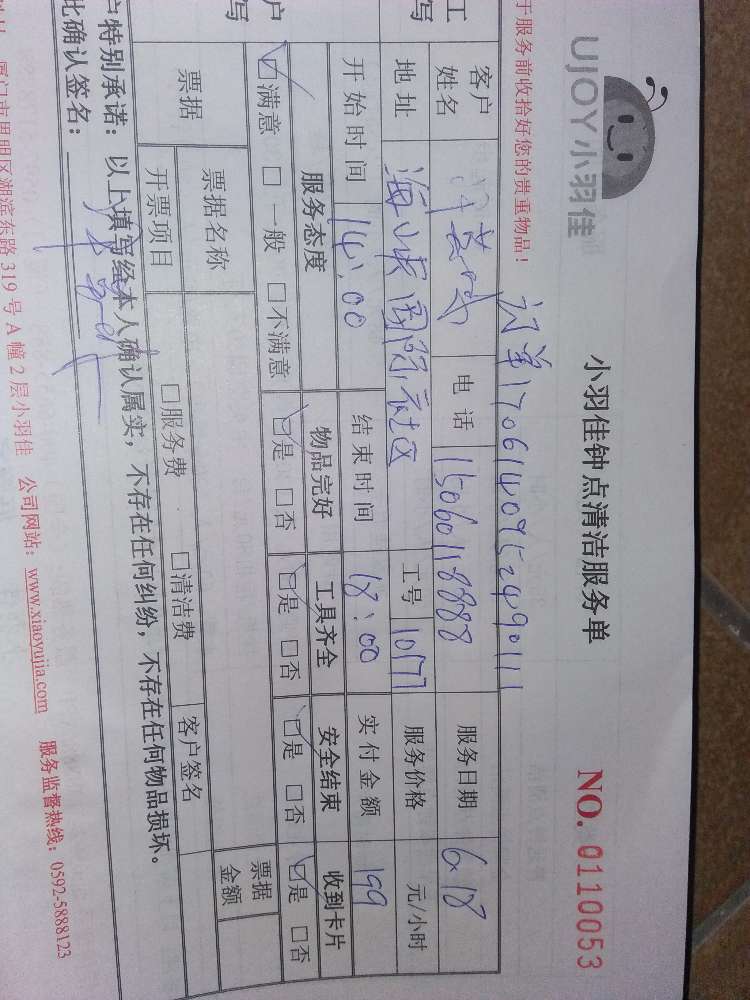 UJOY小羽佳
小羽佳钟点清洁服务单
NO. 0110053
于服务前收拾好您的贵重物品!
订单1706140952490111
工
写
客户姓名 电话 15060118888 服务日期 6.18
地址 海峡国际社区 工号 10177 服务价格 元/小时
开始时间 14:00 结束时间 18:00 实付金额 199
户
写
服务态度 物品完好 工具齐全 安全结束 收到卡片
☑满意 □一般 □不满意 ☑是 □否 ☑是 □否 ☑是 □否 ☑是 □否
票据 票据名称 票据金额
开票项目 □服务费 □清洁费 客户签名
户特别承诺:以上填写经本人确认属实,不存在任何纠纷,不存在任何物品损坏。
此确认签名:
厦门市思明区湖滨东路 319 号 A 幢 2 层小羽佳 公司网站:www.xiaoyujia.com 服务监督热线:0592-5888123